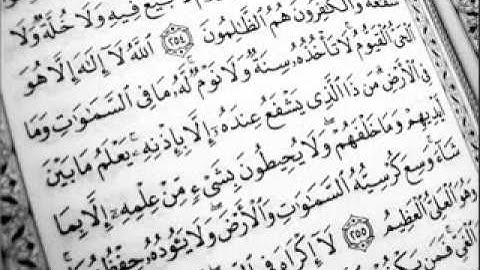 بَيْعٌ فِيهِ وَلَا خُلَّةٌ وَلَا
شَفَٰعَةٌ وَٱلْكَٰفِرُونَ هُمُ ٱلظَّٰلِمُونَ ٢٥٤ ٱللَّهُ لَآ إِلَٰهَ إِلَّا هُوَ
ٱلْحَىُّ ٱلْقَيُّومُ لَا تَأْخُذُهُۥ سِنَةٌ وَلَا نَوْمٌ لَّهُۥ مَا فِى ٱلسَّمَٰوَٰتِ وَمَا
فِى ٱلْأَرْضِ مَن ذَا ٱلَّذِى يَشْفَعُ عِندَهُۥٓ إِلَّا بِإِذْنِهِۦ يَعْلَمُ مَا بَيْنَ
أَيْدِيهِمْ وَمَا خَلْفَهُمْ وَلَا يُحِيطُونَ بِشَىْءٍ مِّنْ عِلْمِهِۦٓ إِلَّا بِمَا
شَآءَ وَسِعَ كُرْسِيُّهُ ٱلسَّمَٰوَٰتِ وَٱلْأَرْضَ وَلَا يَـُٔودُهُۥ
وَهُوَ ٱلْعَلِىُّ ٱلْعَظِيمُ ٢٥٥ لَآ إِكْرَاهَ فِى
ٱلْغَىِّ فَمَن